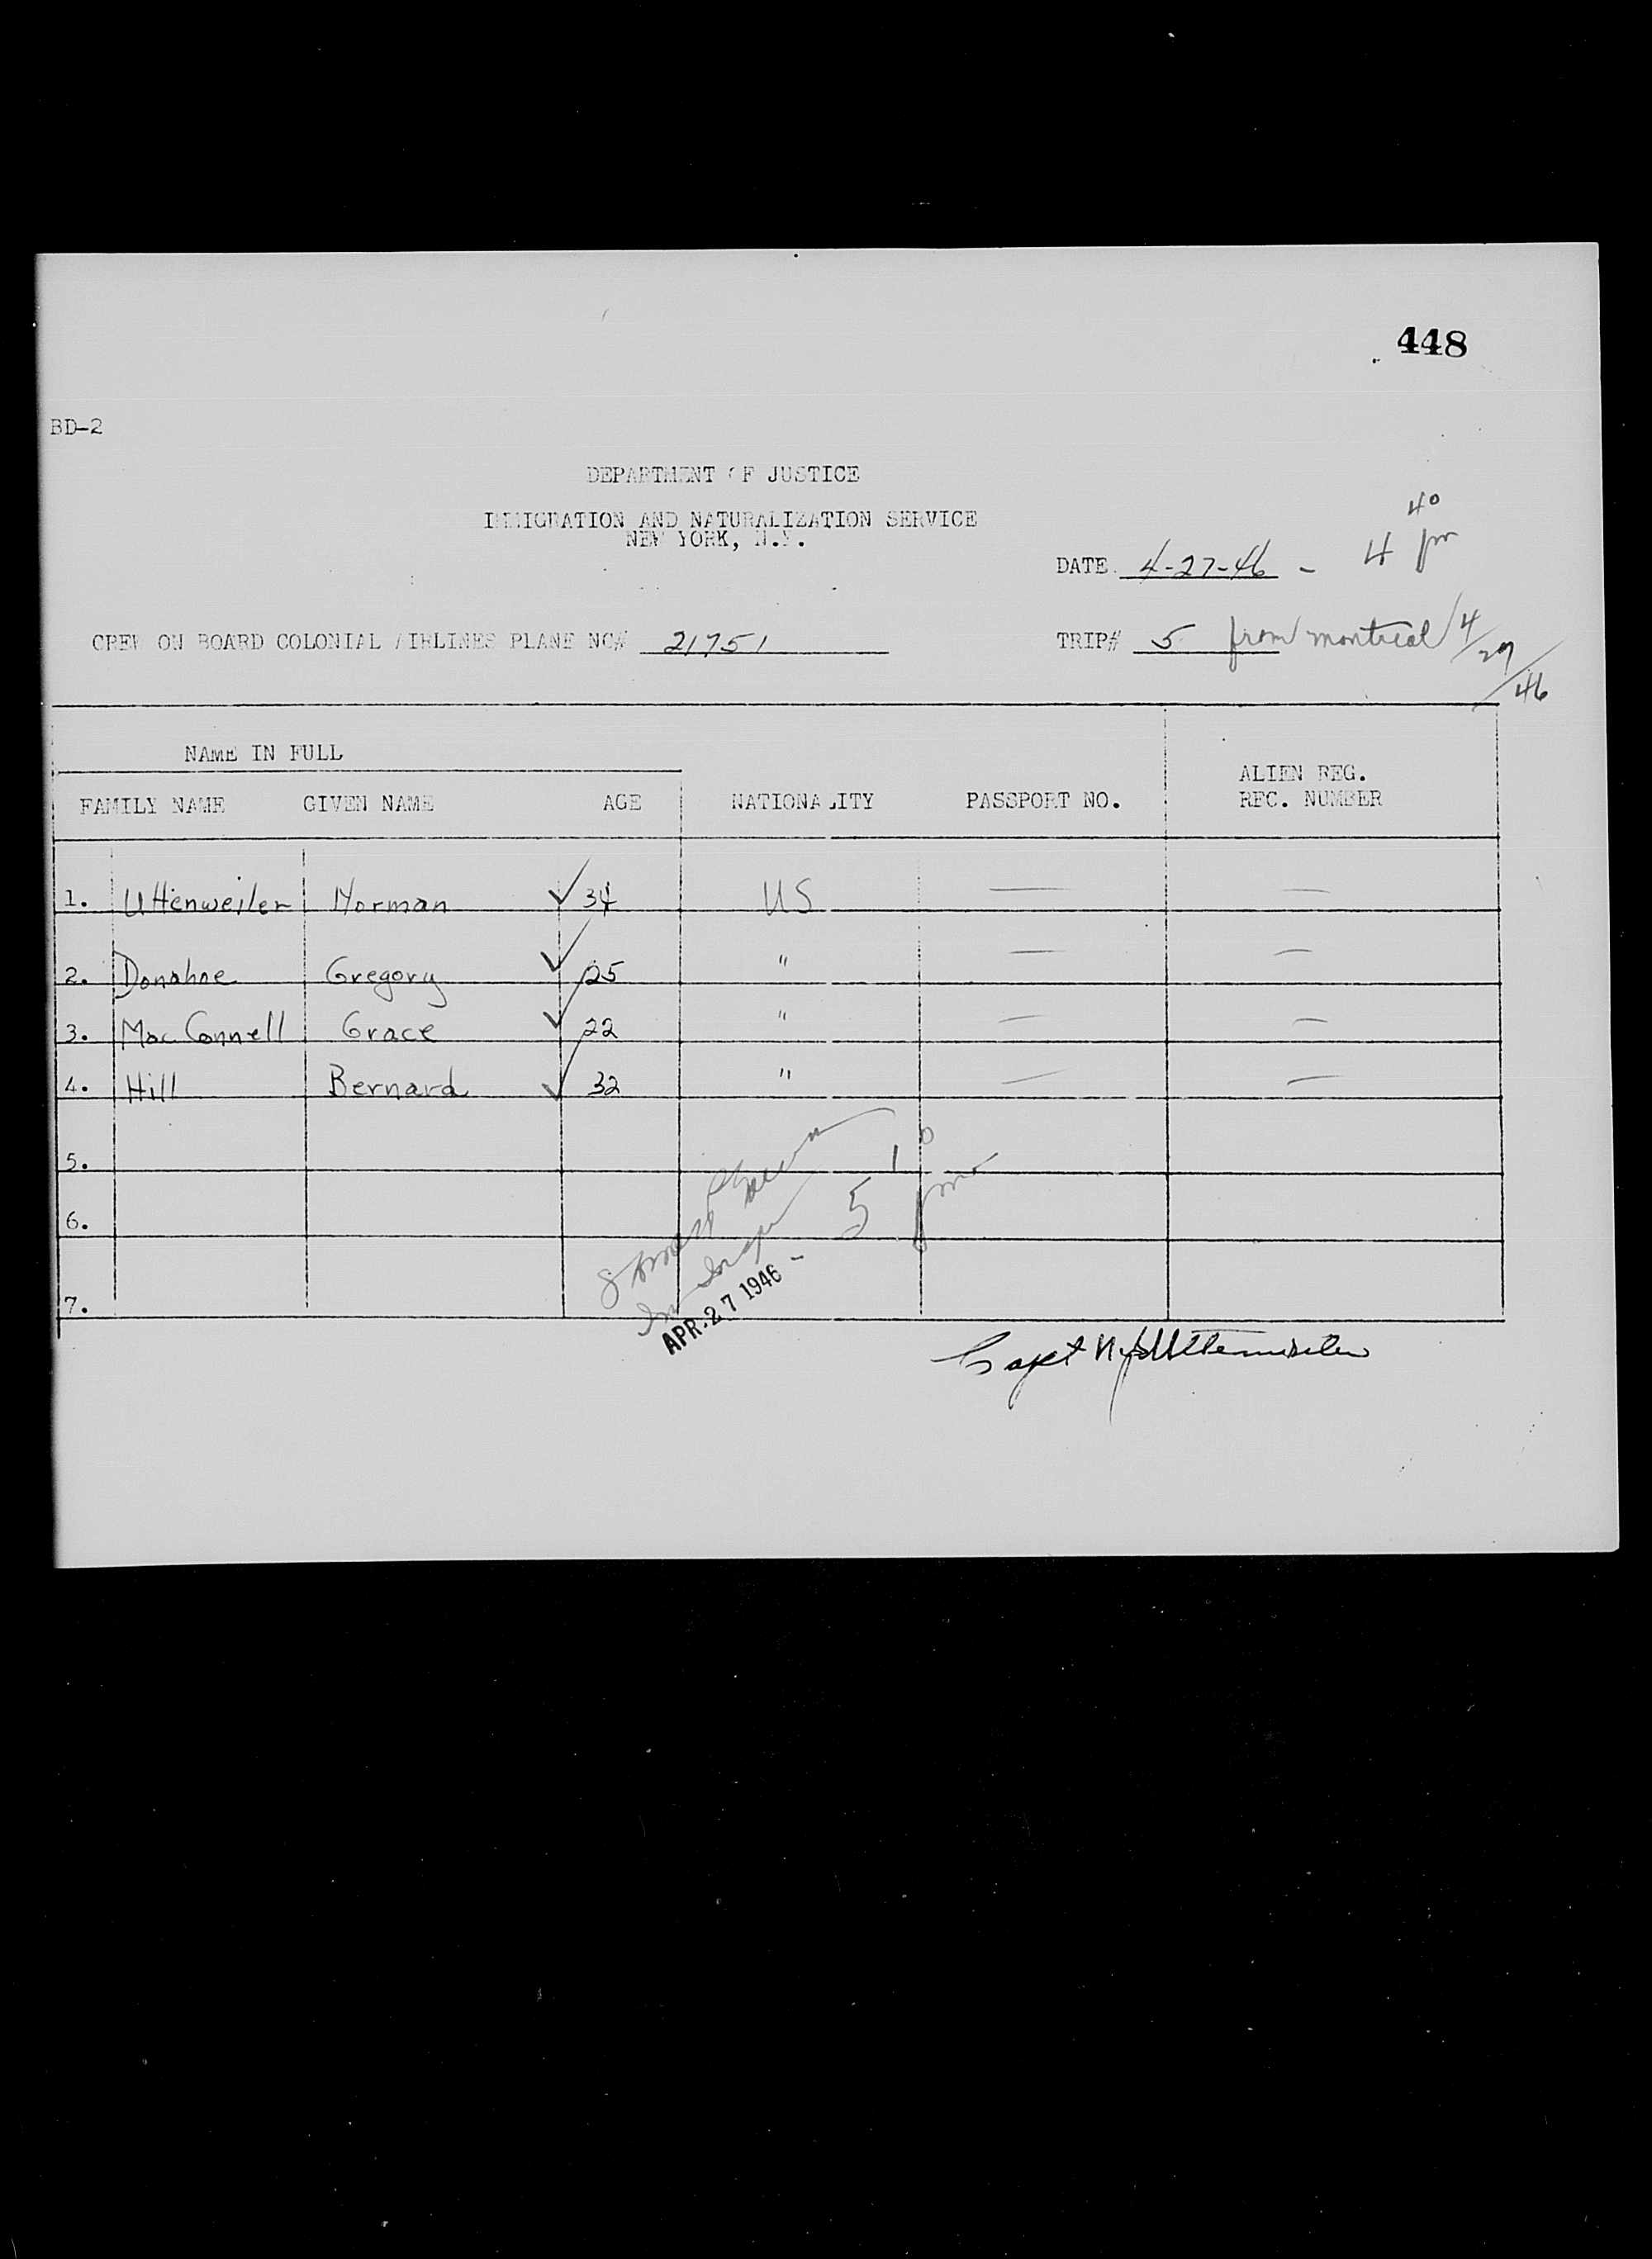 448
BD-2
DEPARTMENT OF JUSTICE
IMMIGRATION AND NATURALIZATION SERVICE
NEW YORK, N.Y.
DATE 4-27-46 - 4 40 pm
CREW ON BOARD COLONIAL AIRLINES PLANE NC# 21751
TRIP# 5 from montreal 4/27/46
NAME IN FULL
FAMILY NAME GIVEN NAME AGE NATIONALITY PASSPORT NO. ALIEN REG. REC. NUMBER
1. Uttenweiler Norman ✓ 34 US — —
2. Donahoe Gregory ✓ 25 " — —
3. MacConnell Grace ✓ 22 " — —
4. Hill Bernard ✓ 32 " — —
5.
6.
7.
5 10 pm
APR. 27 1946 -
Capt Uttenweiler